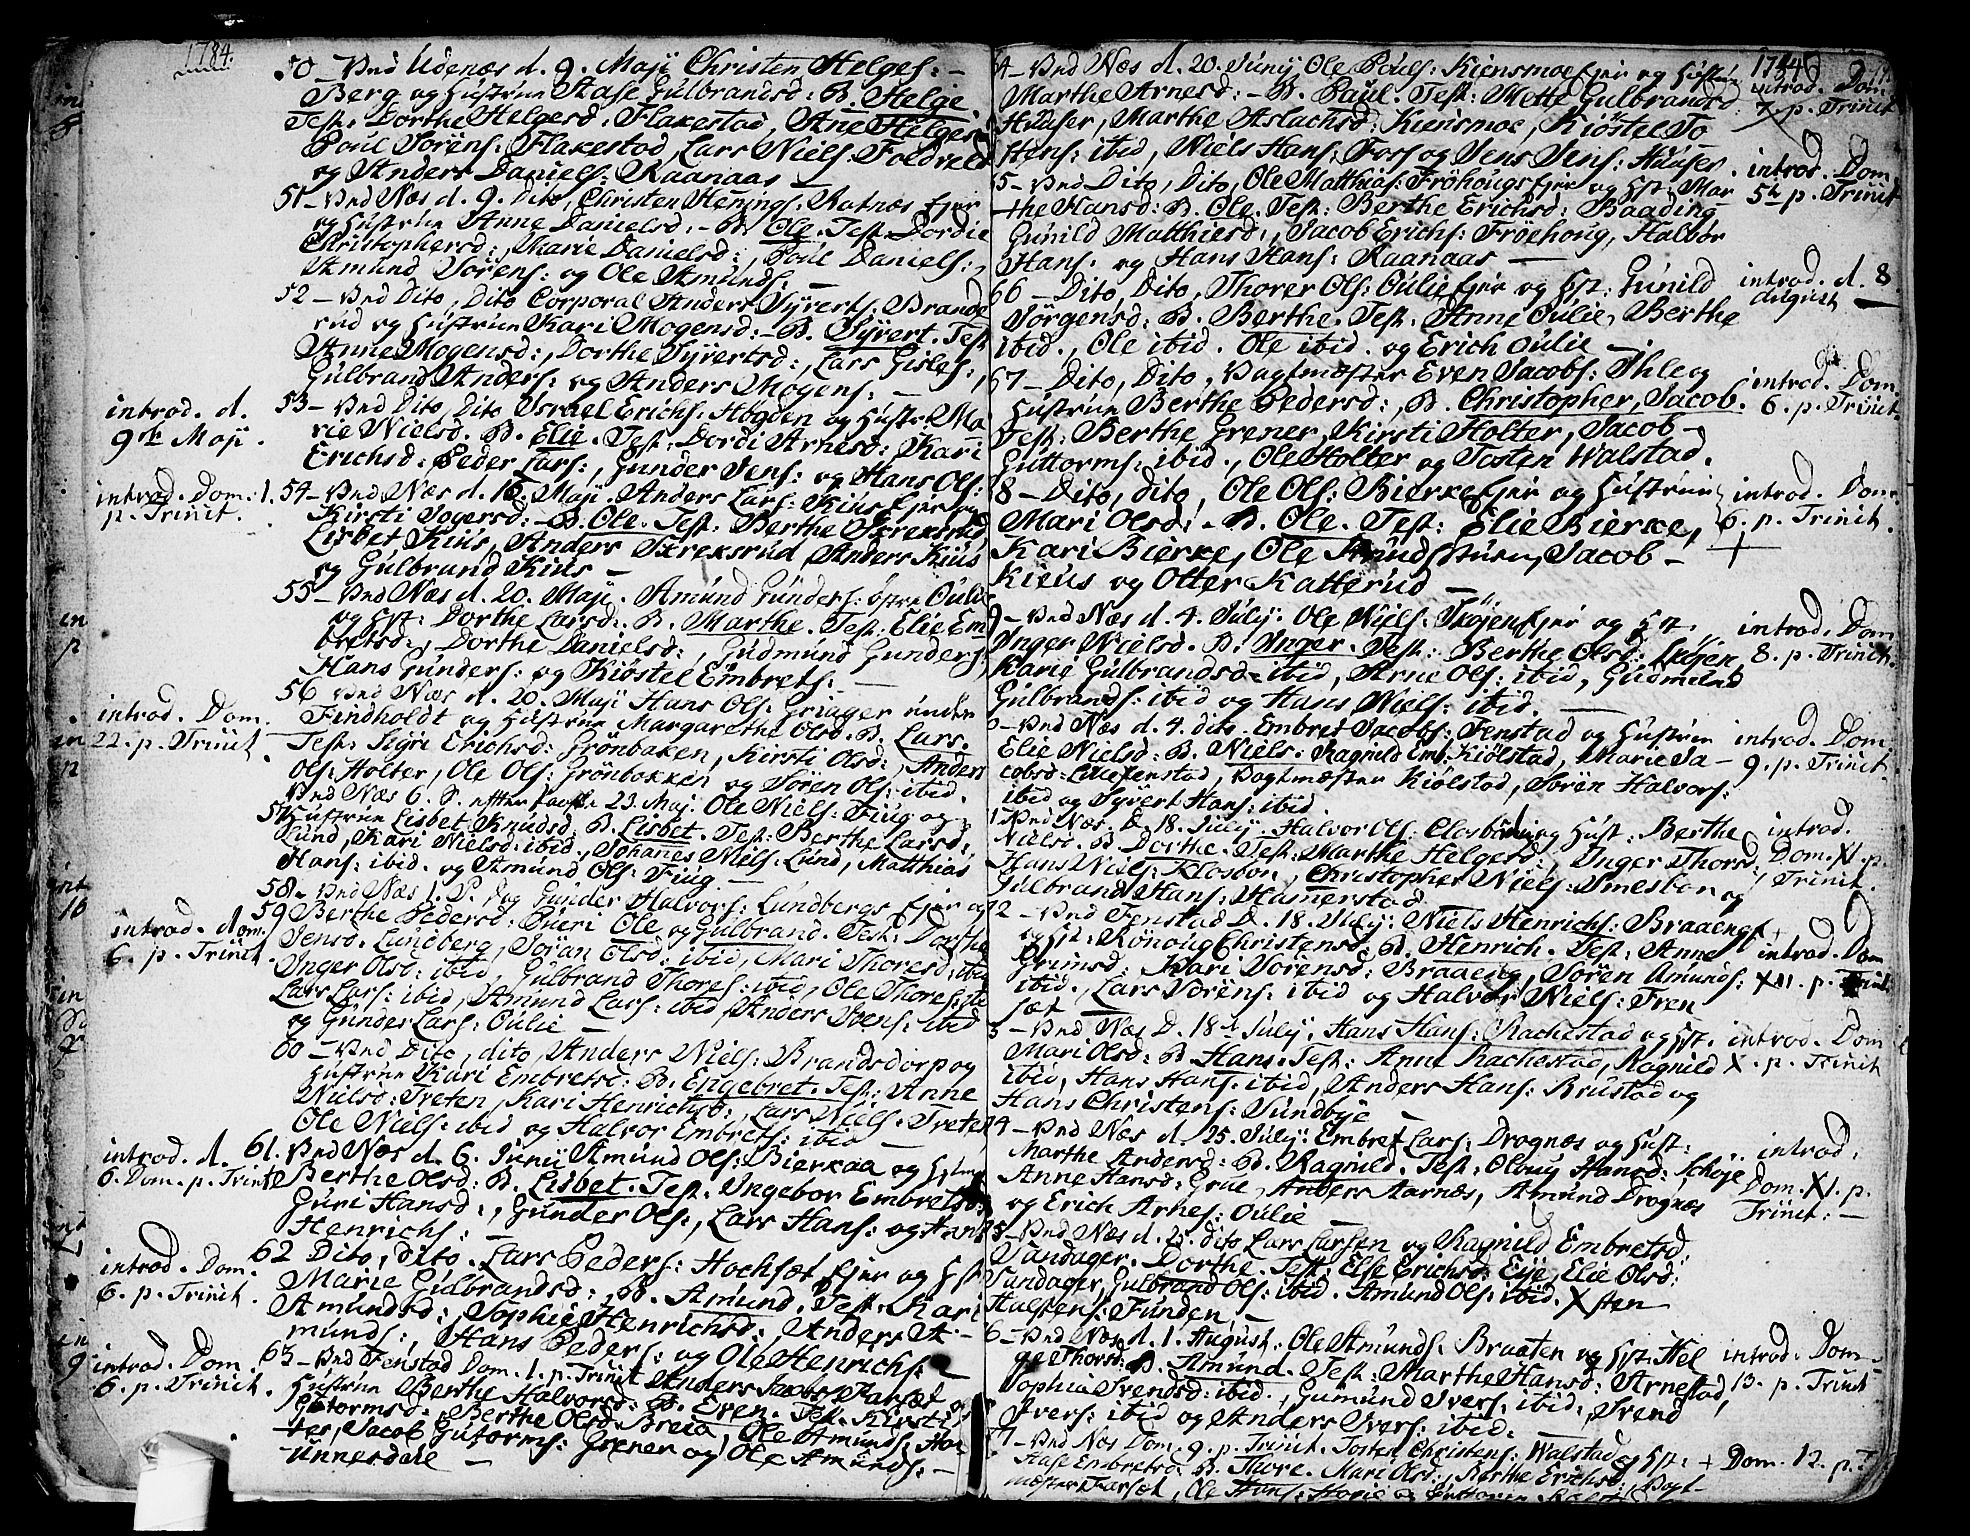 1784.
50 - Ved Udenæs d. 9. Maji Christen Helges: -
Berg og Hustrue Aase Gulbrandsd: B. Helge.
Test. Dorthe Helgesd. Flakestad, Ane Helgesd
Poul Sörens: Flakestad, Lars Niels: Foldveld
og Anders Daniels: Raanaas -
51 - Ved Næs d. 9. Dito, Christen Henings: Rotnæs Ejer
og Hustrue Anne Danielsd. - B. Ole. Test. Dordie
Christophersd:, Marie Danielsd:, Poul Daniels:,
Amund Sörens: og Ole Amunds: -
52 - Ved Dito, Dito Corporal Anders Syverts: Brande
rud og Hustrue Kari Mogensd: - B. Syvert. Test
Anne Mogensd:, Dorthe Syvertsd:, Lars Gisles:,
Gulbrand Anders: og Anders Mogens: -
introd. d.
9de Maji.
53 - Ved Dito, Dito Israel Erichs: Högden og Hustr: Ma
rie Nielsd. B. Elie. Test: Dordi Arnesd: Kari
Erichsd: Peder Lars:, Gunder Jens: og Hans Ols:
introd. Dom: 1.
p. Trinit.
54 - Ved Næs d. 16. Maji. Anders Lars: Kius Ejer og
Kirsti Jogersd: - B. Ole. Test: Berthe Skreksrud
Lisbet Kius, Anders Skreksrud, Anders Kius
og Gulbrand Kius -
55 - Ved Næs d. 20. Maji. Amund Gunders: östre Oulie
og Hst: Dorthe Larsd: B. Marthe. Test: Elie Em
bretsd:, Dorthe Danielsd:, Gudmund Gunders:,
Hans Gunders: og Kiöstel Embrets: -
introd. Dom.
22. p. Trinit -
56 Ved Næs d. 20. Maji Hans Ols: Griager under
Findholdt og Hustrue Margarethe Olsd. B. Lars.
Test: Sigri Erichsd: Grönbaken, Kirsti Olsd:, Anders
Ols: Holter, Ole Ols: Grönbokken og Sören Ols: ibid.
57 Ved Næs 6. S. efter Paaske 23. Maj. Ole Niels: Fiug og
Hustrue Lisbet Knudsd: B. Lisbet. Test: Berthe Larsd:
Lund, Kari Nielsd: ibid, Johanes Niels: Lund, Matthias
Hans: ibid. og Amund Ols: Fiug -
introd. Dom.
6. p. Trinit.
58 - Ved Næs 1. P. Dag Gunder Halvors: Lundbergs Ejer og
59 Berthe Pedersd: Pueri Ole og Gulbrand. Test: Dorthe
Jensd. Lundberg, Joran Olsd: ibid, Mari Thoresd: ibid
Inger Olsd: ibid, Gulbrand Thores: ibid, Ole Thores: ibid
Lars Lars: ibid, Amund Lars: ibid, Anders Svens: ibid
og Gunder Lars: Oulie -
60 - Ved Dito, dito, Anders Niels: Brandsdorp og
Hustrue Kari Embretsd: B. Engebret. Test: Anne
Nielsd: Treten, Kari Henrichsd:, Lars Niels: Treten
Ole Niels: ibid og Halvor Embrets: ibid -
introd. d.
6. Dom. p. Trinit
61. Ved Næs d. 6. Junij Amund Ols: Bierkaa og Hstrue
Berthe Olsd: B. Lisbet. Test. Ingebor Embretsd:
Guri Hansd:, Gunder Ols:, Lars Hans: og Hans
Henrichs: -
introd. Dom.
6. p. Trinit.
62 Dito, dito. Lars Peders: Hochsæt Ejer og Hst
Marie Gulbrandsd:, B. Amund. Test: Kari
Amundsd:, Sophie Henrichsd:, Anders A-
munds:, Hans Peders: og Ole Henrichs:
introd. Dom.
6. p. Trinit.
63 - Ved Fenstad Dom. 1. p. Trinit Anders Jacobs: Farsæt og
Hustrue Berthe Halvorsd: B. Even. Test. Kirsti
Guttormsd:, Berthe Olsd: Breia, Ole Amunds: Hol
ter, Jacob Gutorms: Grener og Ole Amunds: -
Unnerdale -
1784
64 - Ved Næs d. 20. Junij Ole Pouls: Kiensmoe Ejer og Hustrue
Marthe Arnesd: - B. Paul. Test: Mette Gulbrandsd:
Huuser, Marthe Aslachsd: Kiensmoe, Kiöstel To
stens: ibid, Niels Hans: Foss og Jens Jens: Huuser
introd. Dom.
7. p. Trinit
65 - Ved Dito, Dito, Ole Matthias: Fröhougs Ejer og Hst: Mar
the Hansd: B. Ole. Test: Berthe Erichsd: Baading
Gunild Matthiesd:, Jacob Erichs: Fröehoug, Halvor
Hans: og Hans Hans: Raanaas -
introd. Dom.
5te p. Trinit
66 - Dito, Dito, Thorer Ols: Oulie Ejer og Hst: Gunild
Jörgensd: B. Berthe. Test: Anne Oulie, Berthe
ibid., Ole ibid. Ole ibid. og Erich Oulie -
introd. d. 8
August
67 - Dito, Dito, Vagtmæster Even Jacobs: Ihle og
Hustrue Berthe Pedersd:, B. Christopher, Jacob.
Test: Berthe Grener, Kirsti Holter, Jacob -
Guttorms: ibid., Ole Holter og Tosten Walstad.
introd. Dom
6. p. Trinit.
8 - Dito, dito, Ole Ols: Bierke Ejer og Hustrue
Mari Olsd: - B. Ole. Test: Elie Bierke,
Kari Bierke, Ole Sundstuen, Jacob -
Kieus og Otter Katterud -
introd. Dom.
6. p. Trinit.
9 - Ved Næs d. 4. Julij. Ole Niels: Skøjen Ejer og Hst.
Inger Nielsd. B. Inger. Test: Berthe Olsd: Skøjen,
Karie Gulbrandsd: ibid, Arne Ols: ibid, Gudmund
Gulbrands: ibid og Hans Niels: ibid. -
introd. Dom.
8. p. Trinit.
0 - Ved Næs d. 4. dito. Embret Jacobs: Fenstad og Hustrue
Elie Nielsd: B. Niels. Ragnild Emb: Kiölstad, Marie Ja -
cobsd: Lille Fenstad, Vagtmæster Kiölstad, Sören Halvors:
ibid og Syvert Hans: ibid.
introd. Dom.
9. p. Trinit.
1. Ved Næs. D. 18. Julij. Halvor Ols: Closbön og Hust: Berthe
Nielsd. B. Dorthe. Test: Marthe Helgesd:, Inger Thorsd:
Hans Niels: Klosbon, Christopher Niels: Smesbon og
Gulbrand Hans: Hamerstad.
introd.
Dom. XI. p.
Trinit.
72 - Ved Fenstad D. 18. Julij. Niels Henrichs: Braaengs
og Hst: Rönnoug Christensd: B. Henrich. Test: Anne
Grimsd: Kari Sörensd: Braaeng, Sören Amunds:
ibid., Lars Sörens: ibid og Halvor Niels: Fren
sæt -
introd. Dom
XII. p. Trinit.
3 - Ved Næs D. 18de Julij. Hans Hans: Rachestad og Hst.
Mari Olsd: B. Hans. Test: Anne Rachestad, Ragnild
ibid, Hans Hans: ibid, Anders Hans: Brustad og
Hans Christens: Sundbye -
introd. Dom
X. p. Trinit
74 - Ved Næs d. 25. Julij. Embret Lars: Drognæs og Hust:
Marthe Andersd: B. Ragnild. Test: Oloug Hansd: Schoje
Anne Hansd: Grue, Anders Aarnæs, Amund Drognæs
og Erich Arnes: Oulie -
introd:
Dom. XI. p.
Trinit: -
5 - Ved Næs d. 25. dito Lars Larsen og Ragnild Embretsd:
Sundager. Dorthe. Test: Else Erichsd: Eije, Elie Olsd:
Sundager, Gulbrand Ols: ibid. Amund Ols: ibid. X sten
Halstens: Funden. -
6 - Ved Næs d. 1. August. Ole Amunds: Braaten og Hst: Hel
ge Thorsd: B. Amund. Test: Marthe Hansd: Arnestad,
Sophia Svendsd: ibid., Gumund Ivers: ibid:, Svend
Ivers: ibid og Anders Ivers: ibid. -
introd. Dom.
13. p. Trinit
7 - Ved Næs Dom. 9. p. Trinit. Tosten Christens: Walstad og Hst: +
Aase Embretsd: B. Thore. Mari Olsd:, Berthe Erichsd:, Vagt-
mæster Farsæt, Ole
Dom. 12. p. T